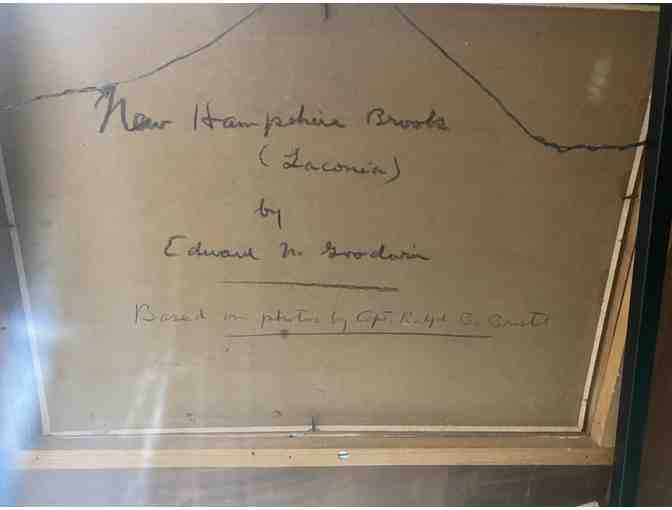 New Hampshire Brook
(Laconia)
by
Edward N. Goodwin
Based on photos by Capt. Ralph